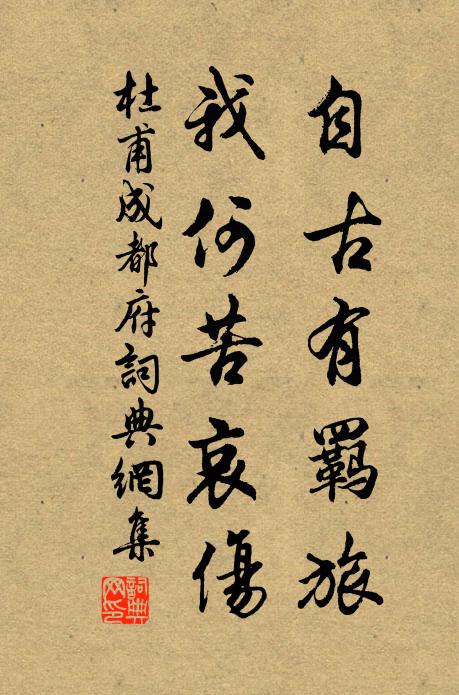 自古有羈旅
我何苦哀傷
杜甫成都府詞典網集
詞典网印